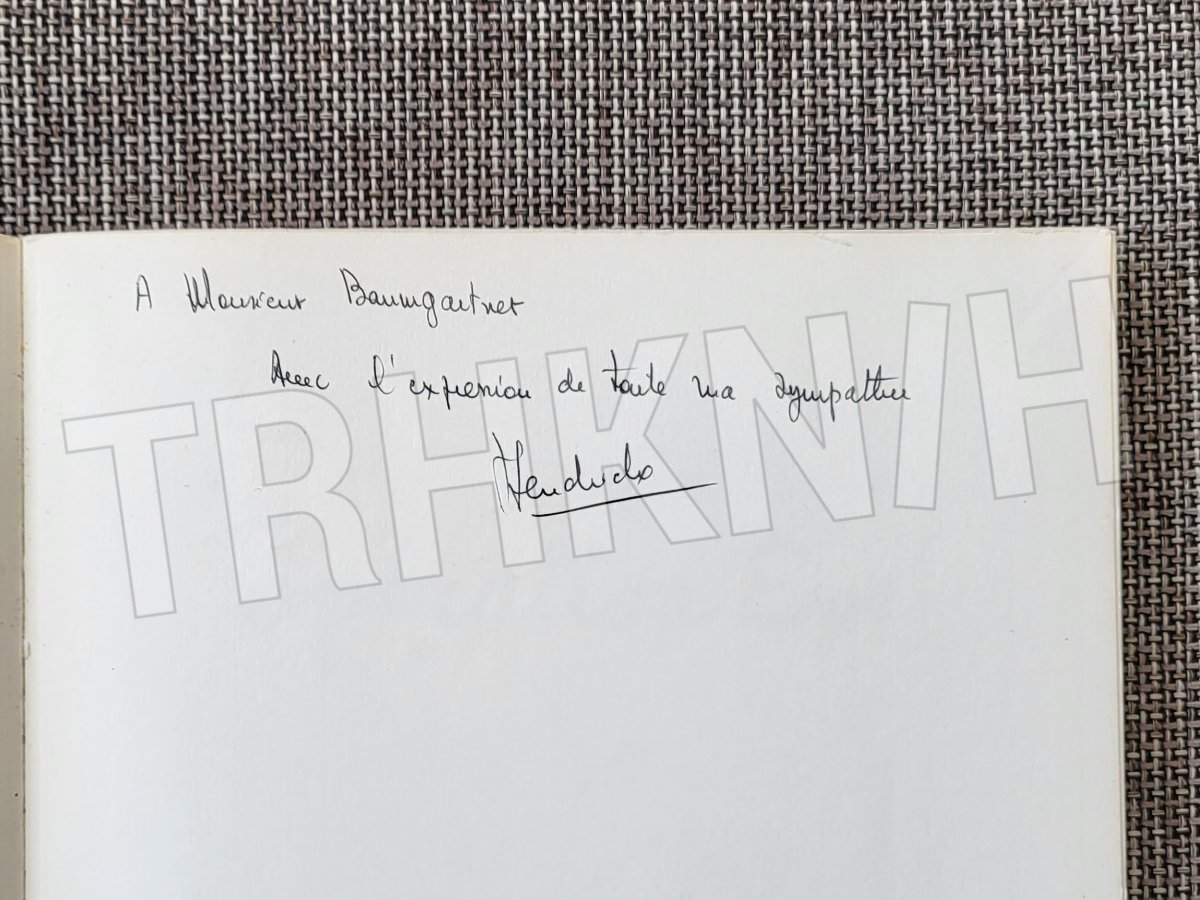 A Monsieur Baumgartner
Avec l'expression de toute ma sympathie
Hendrickx
TRHKN/H